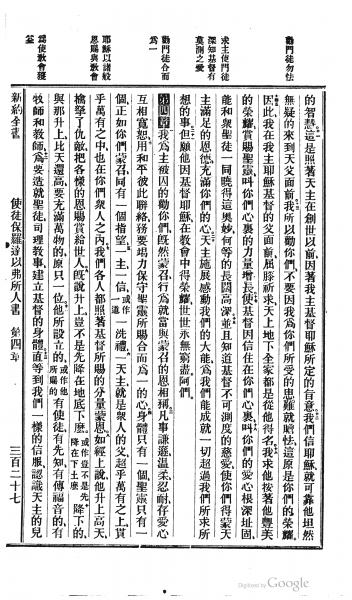 的智慧這是照著天主在創世以前因著我主基督耶穌所定的旨意我們信耶穌就可靠他坦然
無疑的來到天父面前我所以勸你們不要因我為你們所受的患難就膽怯這原是你們的榮耀
因此我在我主耶穌基督的父面前屈膝祈求天上地下全家都是從他得名我求他按著他豐美
的榮耀賞賜聖靈叫你們心裏的力量增長使基督因信住在你們心裏叫你們的愛心根深址固
能和衆聖徒一同曉得這奧妙何等的長闊高深並且知道基督不可測度的慈愛使你們得蒙天
主滿足的恩德充滿你們的心天主施展感動我們的大能為我們能成就一切超過我們所求所
想的事但願他因基督耶穌在教會中得榮耀世世無窮盡阿們
第四章 我為主被囚的勸你們既然蒙召行為就當與蒙召的恩相稱凡事謙遜溫柔忍耐存愛心
互相寬恕用和平彼此聯絡務要竭力保守聖靈所賜合而為一的心身體只有一個聖靈只有一
個正如你們蒙召同有一個指望一主一信或作一道一洗禮一天主就是衆人的父超乎萬有之上貫
乎萬有之中也在你們衆人之內我們各人都照著基督所賜的分量蒙恩如經上說他升上高天
擄擊了仇敵把各樣的恩賜賞給世人既說升上豈不是先降在地底下麼或作豈不是先降在下土麼降下的
與那升上比天還高要充滿萬物的原只一位他所設立的或作他所賜的有使徒有先知有傳福音的有
牧師和教師為要造就聖徒司理教事建立基督的身體直等到我們一樣的信服認識天主的兒
新約全書 使徒保羅達以弗所人書 第四章 三百二十七
勸門徒勿怯
求主使門徒
深知基督有
莫測之愛
勸門徒合而
為一
耶穌以諸般
恩賜與教會
為使教會獲
益
Digitized by Google